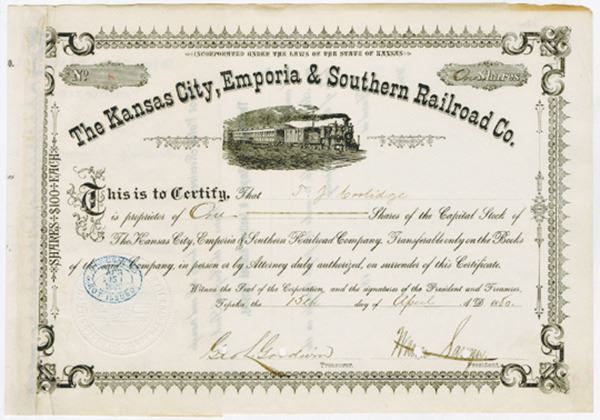 INCORPORATED UNDER THE LAWS OF THE STATE OF KANSAS
No.
One Shares
The Kansas City, Emporia & Southern Railroad Co.
SHARES $100 EACH
This is to Certify, That T. J. Coolidge
is proprietor of One Shares of the Capital Stock of
The Kansas City, Emporia & Southern Railroad Company, Transferable only on the Books
of the said Company, in person or by Attorney duly authorized, on surrender of this Certificate.
Witness the Seal of the Corporation, and the signatures of the President and Treasurer,
Topeka, the 15th day of April A.D. 1880.
Geo. L. Goodwin
Treasurer.
President.